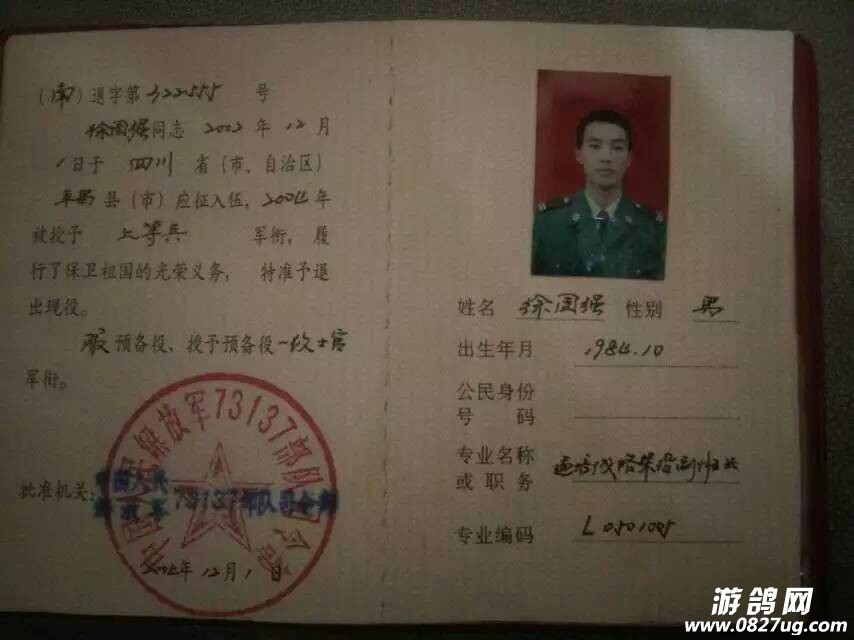 （南）退字第322555号
徐国强同志 2002 年 12 月
1 日于 四川 省（市、自治区）
县（市）应征入伍，2004年
被授予 上等兵 军衔，履
行了保卫祖国的光荣义务，特准予退
出现役。
服预备役、授予预备役一级士官
军衔。
中国人民解放军73137部队司令部
批准机关：中国人民
解放军73137部队司令部
2004年12月1日
姓名 徐国强 性别 男
出生年月 1984.10
公民身份
号 码
专业名称
或职务 线路架设副班长
专业编码 L0501005
游鸽网
www.0827ug.com